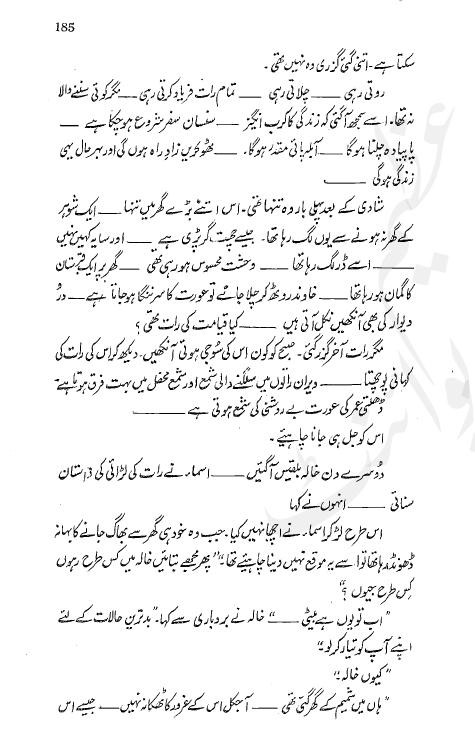 185
سکتا ہے ۔ اتنی گئی گزری وہ نہیں تھی ۔
روتی رہی ـــــ چلاتی رہی ـــــ تمام رات فریاد کرتی رہی ـــــ مگر کوئی سننے والا
نہ تھا۔ اسے سمجھ آ گئی کہ زندگی کا کرب انگیز ـــــ سنسان سفر شروع ہو چکا ہے ـــــ
پا پیادہ چلنا ہو گا ـــــ آبلہ پائی مقدر ہو گا۔ ـــــ ٹھوکریں زادِ راہ ہوں گی اور بہر حال یہی
زندگی ہو گی ـــــ
شادی کے بعد پہلی بار وہ تنہا تھی۔ اس اتنے بڑے گھر میں تنہا ـــــ ایک شوہر
کے گھر نہ ہونے سے یوں لگ رہا تھا۔ جیسے چھت گر پڑی ہے ـــــ اور سایہ کہیں نہیں
ـــــ اسے ڈر لگ رہا تھا ـــــ وحشت محسوس ہو رہی تھی ـــــ گھر پر ایک قبرستان
کا گمان ہو رہا تھا ـــــ خاوند روٹھ کر چلا جائے تو عورت کا سر ننگا ہو جاتا ہے ـــــ در و
دیوار کی بھی آنکھیں نکل آتی ہیں ـــــ کیا قیامت کی رات تھی ؟
مگر رات آخر گزر گئی۔ صبح کو کون اس کی سوجی ہوئی آنکھیں۔ دیکھ کر اس کی رات کی
کہانی پوچھتا ـــــ ویران راتوں میں سلگنے والی شمع اور شمع محفل میں بہت فرق ہوتا ہے۔
ڈھلتی عمر کی عورت بے روشنی کی شمع ہوتی ہے ـــــ
اس کو جل ہی جانا چاہیئے ۔
دوسرے دن خالہ بلقیس آ گئیں ـــــ اسمار نے رات کی لڑائی کی داستان
سنائی ـــــ انہوں نے کہا
اس طرح لڑ کر اسمار نے اچھا نہیں کیا۔ جب وہ خود ہی گھر سے بھاگ جانے کا بہانہ
ڈھونڈ رہا تھا تو اسے یہ موقع نہیں دینا چاہیئے تھا۔" "پھر مجھے بتائیں خالہ میں کس طرح رہوں
کس طرح جیوں ؟"
"اب تو یوں ہے بیٹی ـــــ" خالہ نے بردباری سے کہا۔ "بدترین حالات کے لئے
اپنے آپ کو تیار کر لو۔"
"کیوں خالہ۔"
"ہاں میں شمیم کے گھر گئی تھی ـــــ آجکل اس کے غرور کا ٹھکانہ نہیں ـــــ جیسے اس